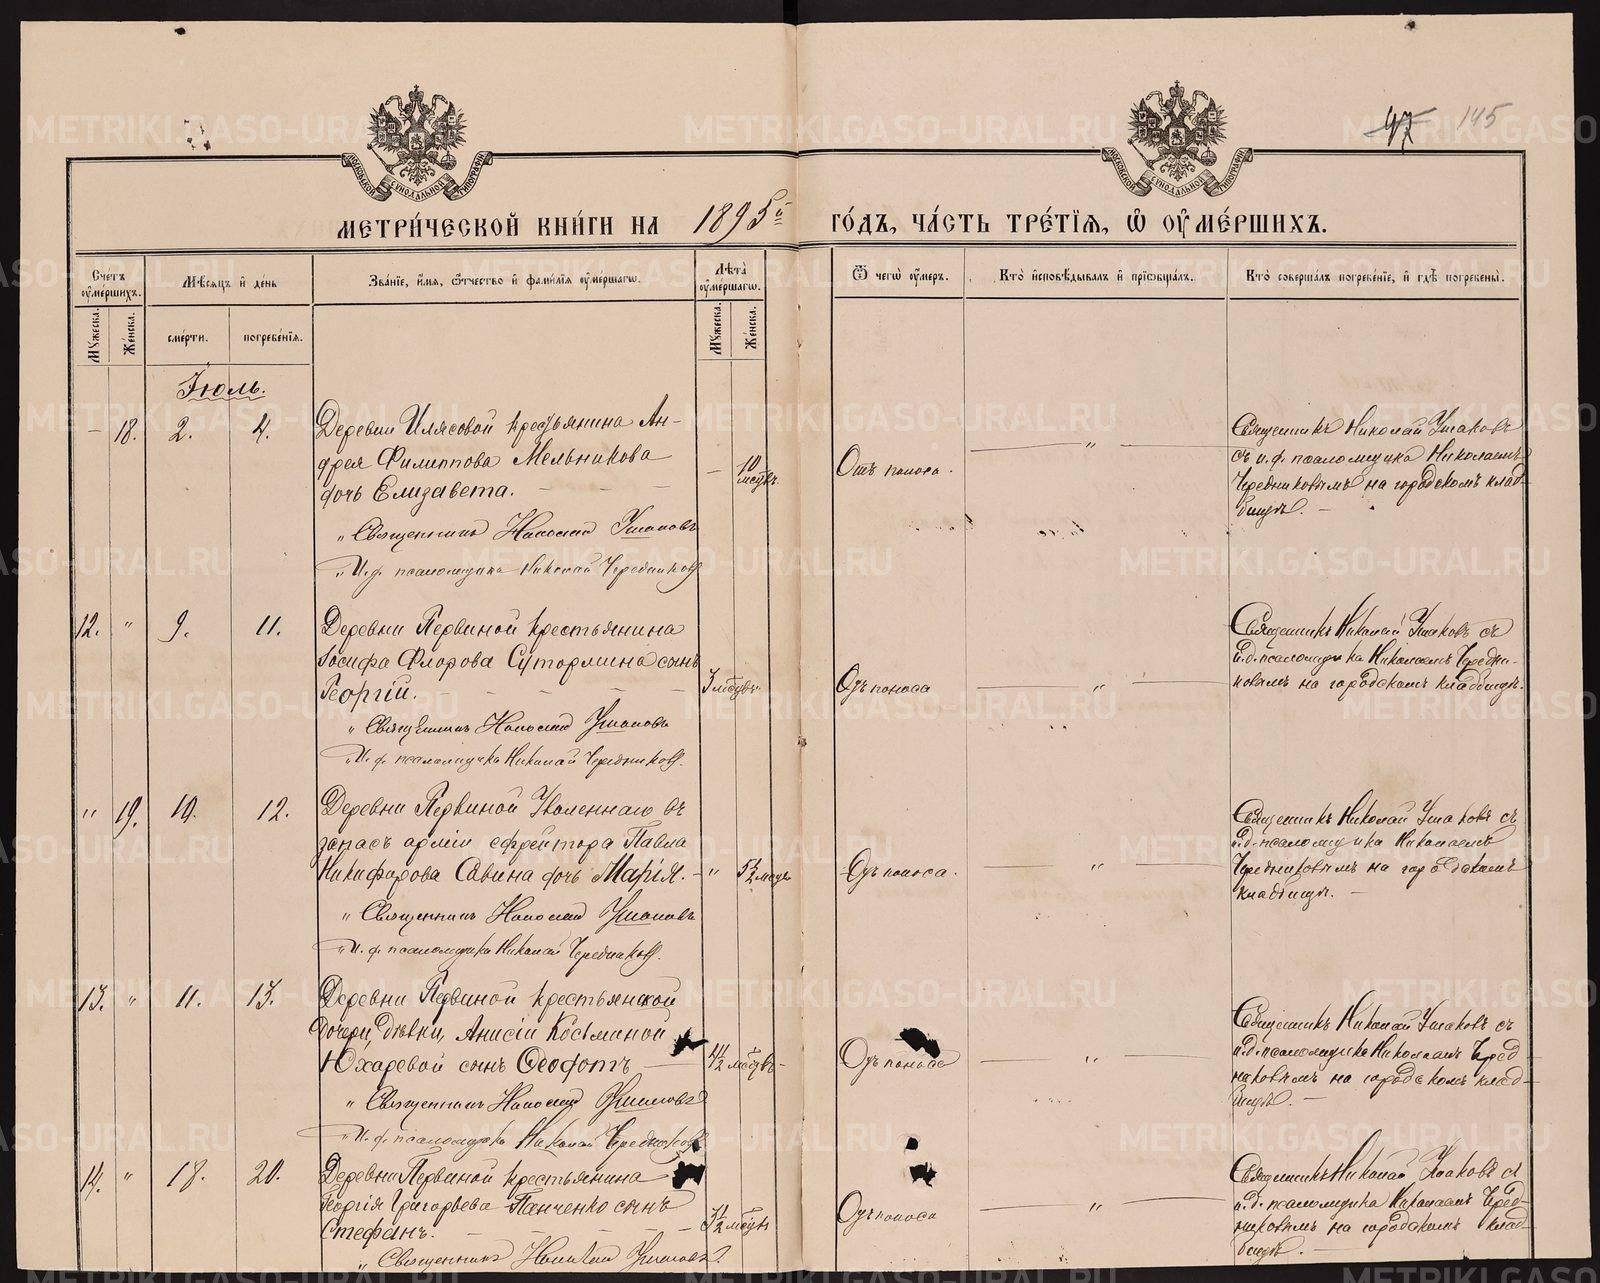 47 145
МОСКОВСКОЙ СѴНОДАЛЬНОЙ ТИПОГРАФІИ
МОСКОВСКОЙ СѴНОДАЛЬНОЙ ТИПОГРАФІИ
МЕТРИ́ЧЕСКОЙ КНИ́ГИ НА 1895й ГО́ДЪ, ЧА́СТЬ ТРЕ́ТІѦ, Ѡ҆ ОУ҆МЕ́РШИХЪ.
Сче́тъ оу҆ме́ршихъ.
Му́жеска.
Же́нска.
Мѣ́сѧцъ и҆ де́нь
сме́рти.
погребе́нїѧ.
Зва́нїе, и҆́мѧ, ѻ҆́тчество и҆ фами́лїѧ оу҆ме́ршагѡ.
Лѣ́та оу҆ме́ршагѡ.
Му́жеска.
Же́нска.
Ѿ чегѡ̀ оу҆́меръ.
Кто̀ и҆сповѣ́дывалъ и҆ прїѻбща́лъ.
Кто̀ соверша́лъ погребе́нїе, и҆ гдѣ̀ погребены̀.
Іюль.
– 18. 2. 4.
Деревни Илясовой крестьянина Ан-
дрея Филиппова Мельникова
дочь Елизавета. – – –
„ Священникъ Николай Ушаковъ
„ И. д. псаломщика Николай Чередниковъ
– 10 мсцвъ.
Отъ поноса.
„
Священникъ Николай Ушаковъ
съ и. д. псаломщика Николаемъ
Чередниковымъ на городскомъ клад-
бищѣ. –
12. „ 9. 11.
Деревни Первиной крестьянина
Іосифа Флорова Сутормина сынъ
Георгій. – – – –
„ Священникъ Николай Ушаковъ
„ И. д. псаломщика Николай Чередниковъ.
3 мсцвъ
Отъ поноса
„
Священникъ Николай Ушаковъ съ
и. д. псаломщика Николаемъ Чередни-
ковымъ на городскомъ кладбищѣ.
„ 19. 10. 12.
Деревни Первиной Уволеннаго въ
запасъ арміи ефрейтора Павла
Никифорова Савина дочь Марія. –
„ Священникъ Николай Ушаковъ
„ И. д. псаломщика Николай Чередниковъ.
„ 5½ мсцвъ
Отъ поноса.
„
Священникъ Николай Ушаковъ съ
и. д. псаломщика Николаемъ
Чередниковымъ на городскомъ
кладбищѣ. –
13. „ 11. 13.
Деревни Первиной крестьянской
дочери, дѣвки, Анисіи Косьминой
Юхаревой сынъ Ѳеофотъ
„ Священникъ Николай Ушаковъ
„ И. д. псаломщика Николай Чередниковъ
4½ мсцвъ
Отъ поноса
„
Священникъ Николай Ушаковъ съ
и. д. псаломщика Николаемъ Черед-
никовымъ на городскомъ клад-
бищѣ. –
14. „ 18. 20.
Деревни Первиной крестьянина
Георгія Григорьева Панченко сынъ
Стефанъ. – – – –
„ Священникъ Николай Ушаковъ.
3½ мсцвъ
Отъ поноса
„
Священникъ Николай Ушаковъ съ
и. д. псаломщика Николаемъ Черед-
никовымъ на городскомъ клад-
бищѣ. –
METRIKI.GASO-URAL.RU